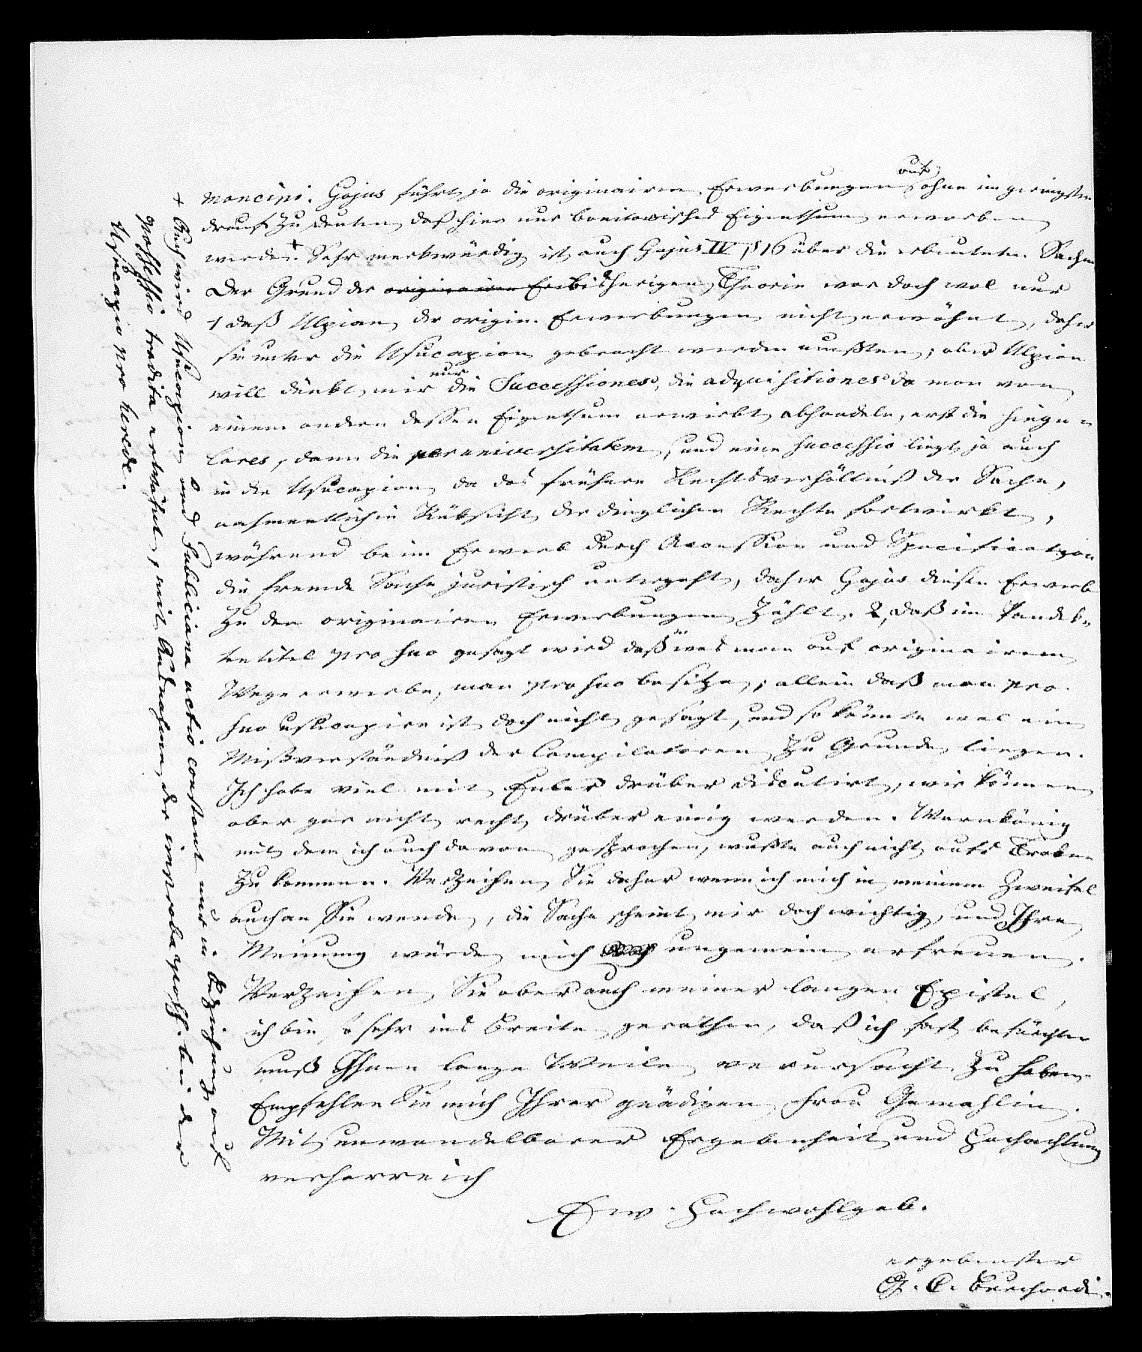 auf,
mancipi. Gajus führt ja die originairen Erwerbungen ohne im geringsten
drauf zu deuten daß hier nur bonitarisches Eigenthum erworben
werde.+ Sehr merkwürdig ist auch Gajus IV § 16 über die erbeuteten Sachen
Der Grund der originairen bisherigen Theorie war doch wol nur
1 daß Ulpian der origin. Erwerbungen nicht erwähnt, daher
sie unter die Usucapion gebracht werden mußten; aber Ulpian
nur
will dünkt mir die Successiones, die adquisitiones da man von
einem andern dessen Eigenthum erwirbt abhandeln, erst die singu-
lares, dann die per universitatem, und eine successio liegt ja auch
in der Usucapion da das frühere Rechtsverhältniß der Sache,
nahmentlich in Rüksicht der dinglichen Rechte fortwirkt,
während beim Erwerb durch Accession und Specification
die fremde Sache juristisch untergeht, daher Gajus diesen Erwerb
zu den originairen Erwerbungen zählt. 2, daß im Pandek-
tentitel pro suo gesagt wird daß was man auf originairem
Wege erwerbe, man pro suo besitze; allein daß man pro
suo usucapire ist doch nicht gesagt, und so könnte wol ein
Mißverständniß der Compilatoren zu Grunde liegen.
Ich habe viel mit drüber discutirt, wir können
aber gar nicht recht drüber einig werden. Warnkönig
mit dem ich auch davon gesprochen, wußte auch nicht aufs Trokne
zu kommen. Verzeihen Sie daher wenn ich mich in meinem Zweifel
auch an Sie wende, die Sache scheint mir doch wichtig, und Ihre
Meinung würde mich ungemein erfreuen.
Verzeihen Sie aber auch meiner langen Epistel,
ich bin so sehr ins Breite gerathen, daß ich fast befürchten
muß Ihnen lange Weile verursacht zu haben.
Empfehlen Sie mich Ihrer gnädigen Frau Gemahlin.
Mit unwandelbarer Ergebenheit und Hochachtung
verharre ich
Ew. Hochwohlgeb.
ergebenster
G. C. Burchardi.
+ Auch wird Usucapion und Publiciana actio constant nur in Beziehung auf
possessio tradita erwähnt, mit Ausnahme der improba poss. bei der
Usucapio pro herede.